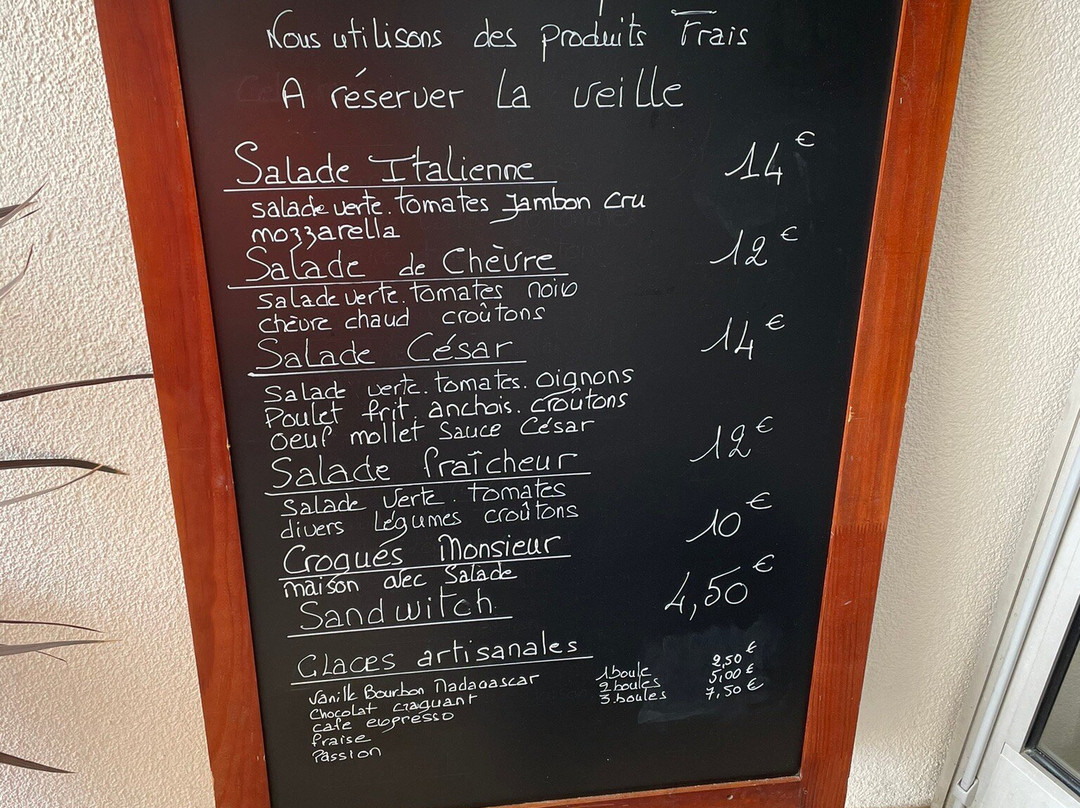 Nous utilisons des produits Frais
A réserver La veille
Salade Italienne 14€
salade verte. tomates Jambon cru
mozzarella
Salade de Chèvre 12€
salade verte. tomates noix
chèvre chaud croûtons
Salade César 14€
Salade verte. tomates. oignons
Poulet frit. anchois. croûtons
oeuf mollet Sauce César
Salade fraîcheur 12€
Salade verte. tomates
divers légumes croûtons
Croqués Monsieur 10€
maison avec Salade
Sandwitch 4,50€
Glaces artisanales
Vanille Bourbon Madagascar 1 boule 2,50€
Chocolat craquant 2 boules 5,00€
café expresso 3. boules 7,50€
fraise
Passion